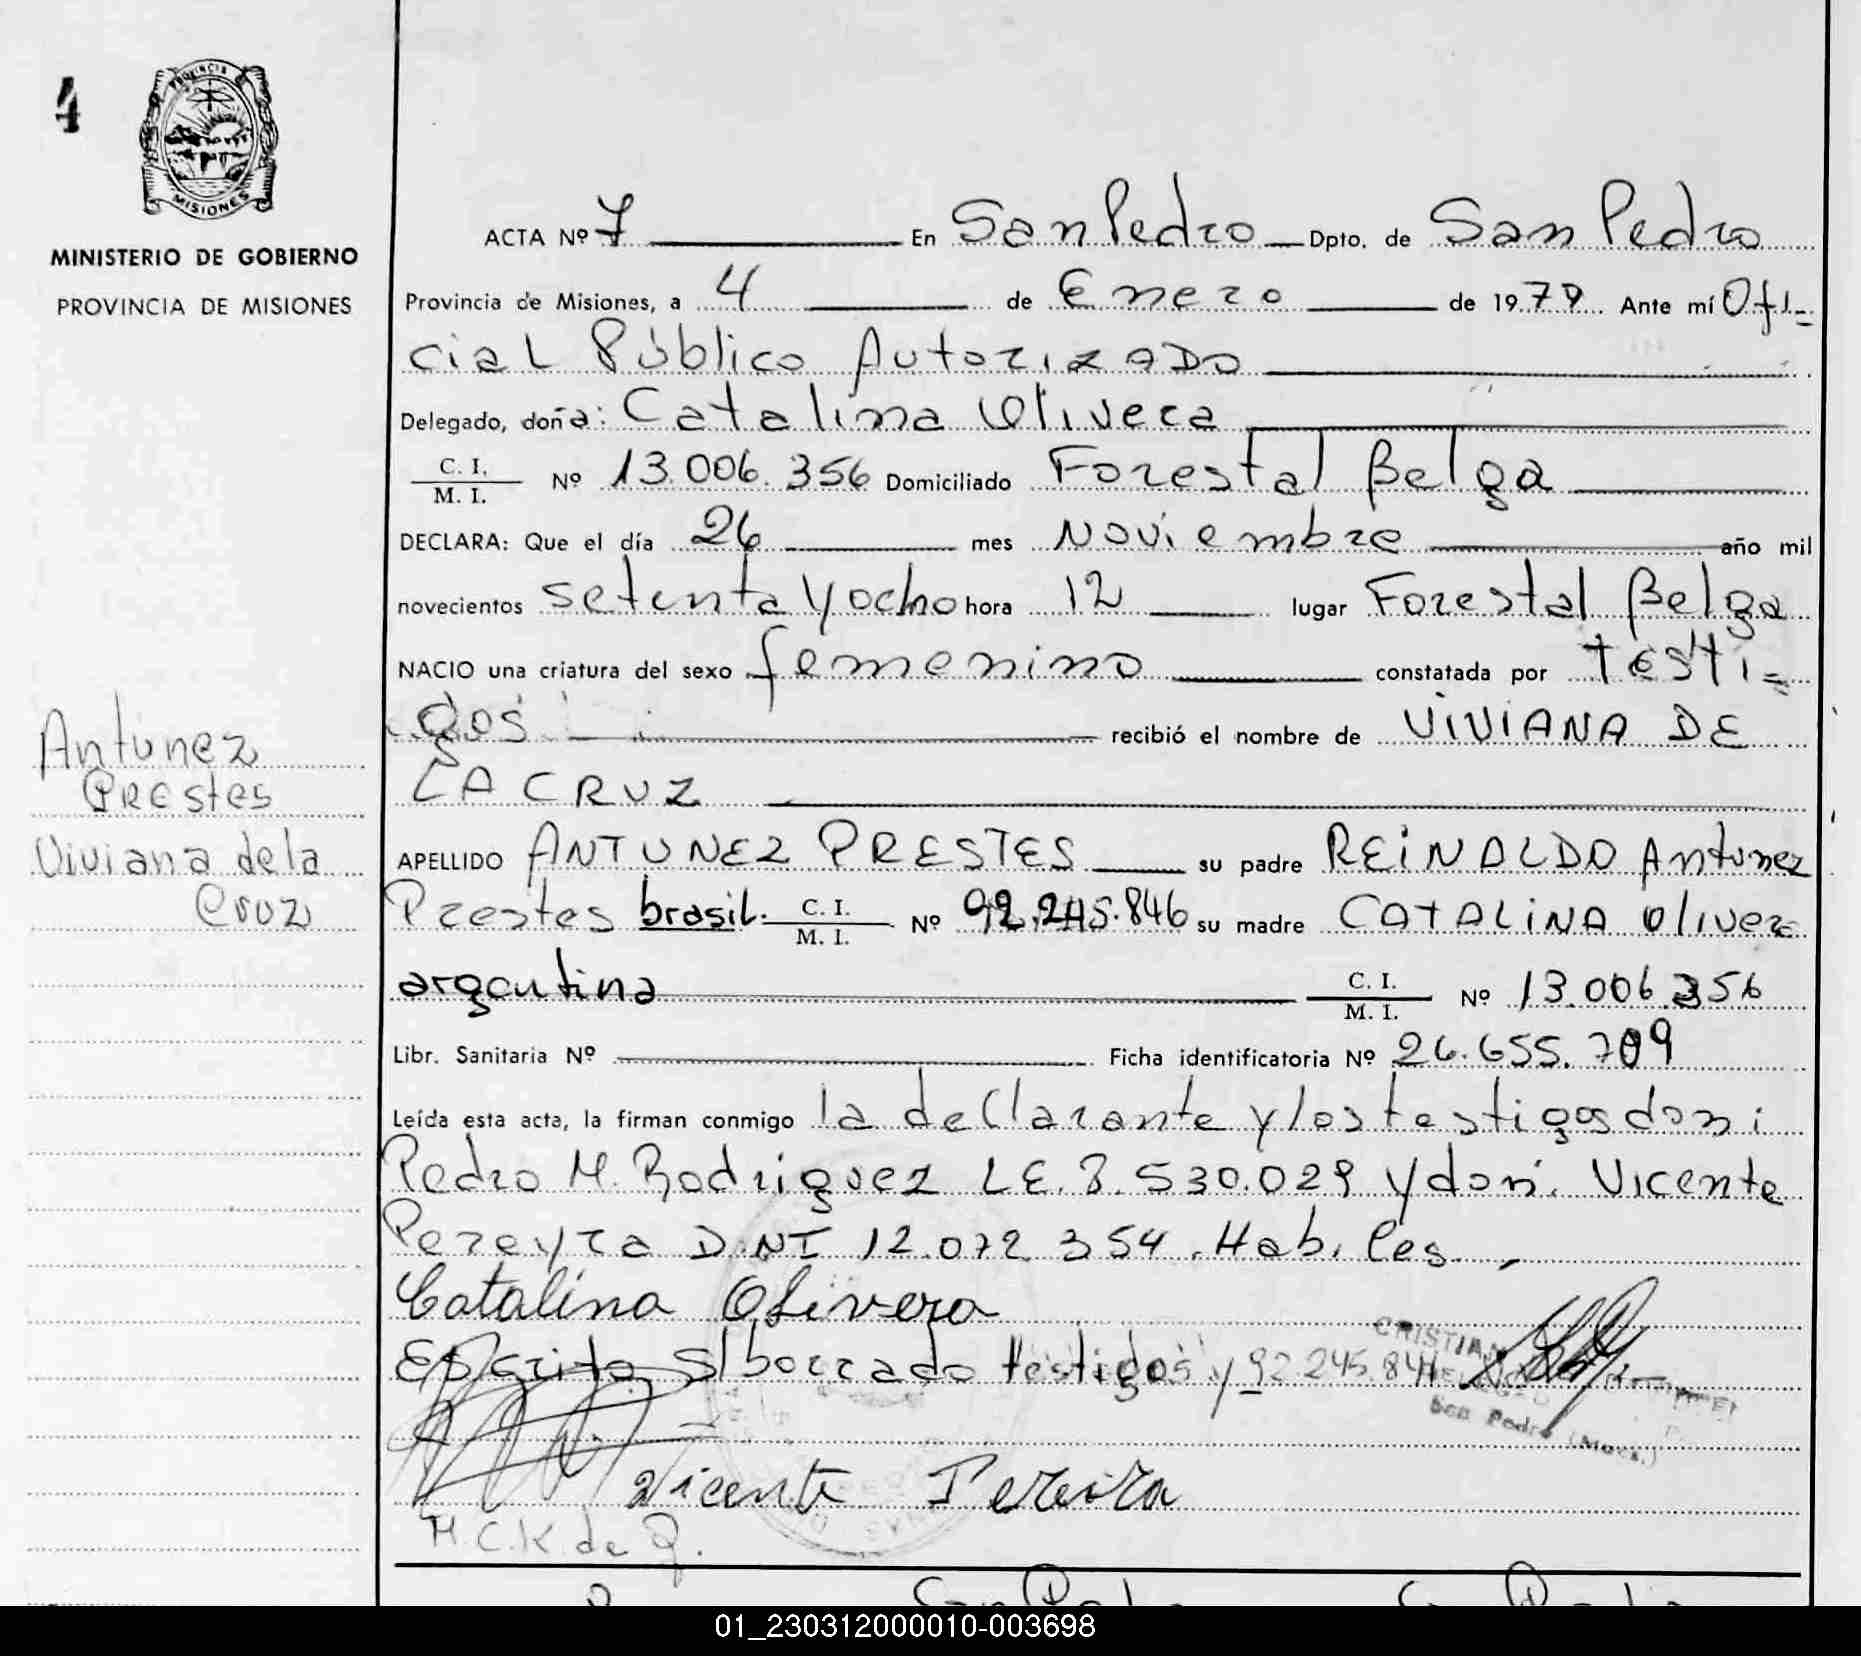 4
PROVINCIA
MISIONES
MINISTERIO DE GOBIERNO
PROVINCIA DE MISIONES
ACTA Nº 7 En San Pedro Dpto. de San Pedro
Provincia de Misiones, a 4 de Enero de 1979 Ante mí Ofi=
cial Público Autorizado
Delegado, doña: Catalina Olivera
C. I.
M. I. Nº 13.006.356 Domiciliado Forestal Belga
DECLARA: Que el día 26 mes Noviembre año mil
novecientos setenta y ocho hora 12 lugar Forestal Belga
NACIO una criatura del sexo femenino constatada por testi=
gos recibió el nombre de VIVIANA DE
LA CRUZ
Antunez
Prestes
Viviana de la
Cruz
APELLIDO ANTUNEZ PRESTES su padre REINALDO Antunez
Prestes brasil. C. I.
M. I. Nº 92.245.846 su madre CATALINA Olivera
argentina C. I.
M. I. Nº 13.006.356
Libr. Sanitaria Nº Ficha identificatoria Nº 26.655.709
Leída esta acta, la firman conmigo la declarante y los testigos don:
Pedro M. Rodriguez L.E. 8.530.029 y don: Vicente
Pereyra D.NI 12.072.354. Habiles.
Catalina Olivera
Escrito s/borrado testigos y 92.245.846
CRISTIAN
San Pedro (Mnes.)
Vicente Pereira
M.C.K. de Q.
San Pedro San Pedro
01_230312000010-003698